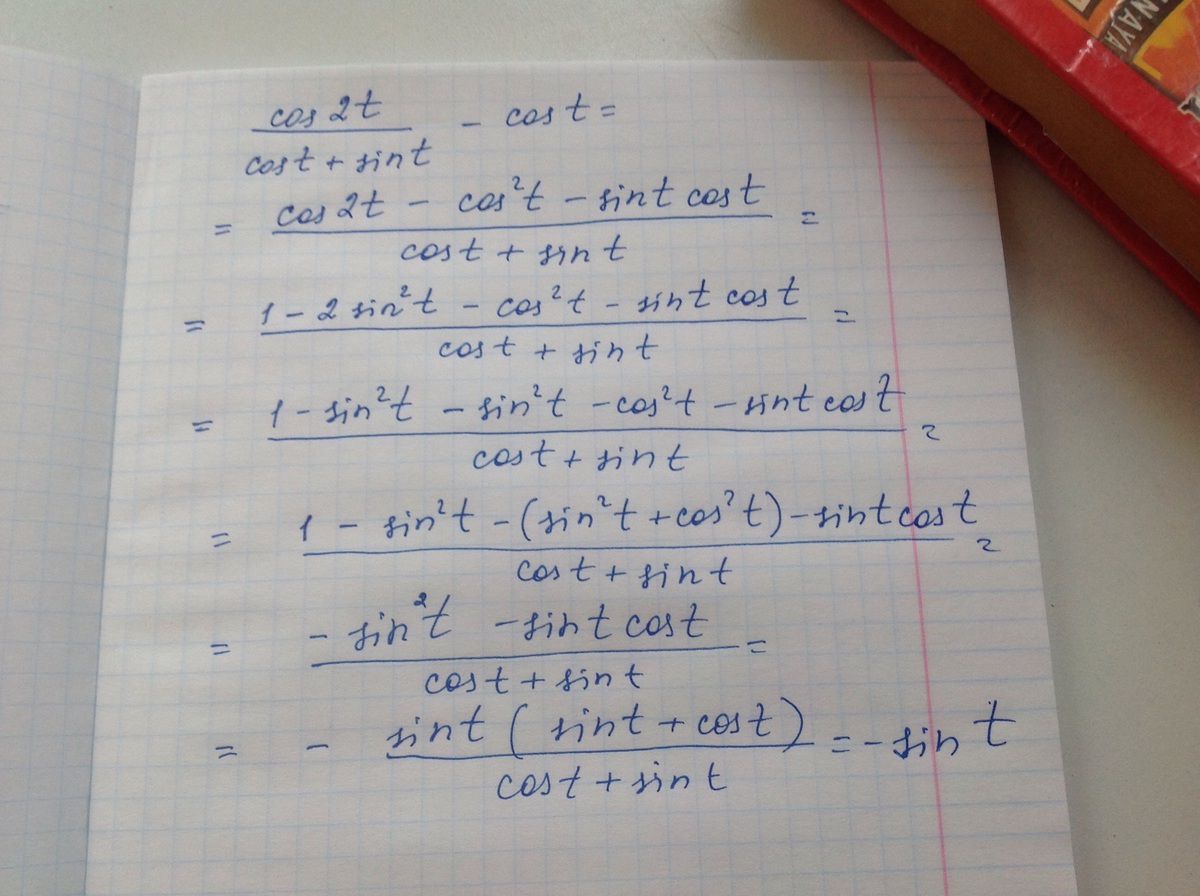 cos 2t / cos t + sin t - cos t =
= cos 2t - cos²t - sin t cos t / cos t + sin t =
= 1 - 2 sin²t - cos²t - sin t cos t / cos t + sin t =
= 1 - sin²t - sin²t - cos²t - sin t cos t / cos t + sin t =
= 1 - sin²t - (sin²t + cos²t) - sin t cos t / cos t + sin t =
= - sin²t - sin t cos t / cos t + sin t =
= - sin t ( sin t + cos t ) / cos t + sin t = - sin t